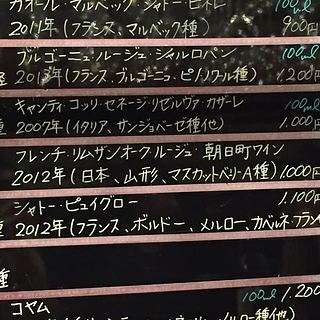 カオール・マルベック・シャトー・ピネレ 100ml
2011年(フランス、マルベック種) 900円
ブルゴーニュ・ルージュ・シャルロパン 100ml
2013年(フランス、ブルゴーニュ・ピノノワール種) 1,200円
キャンティ・コッリ・セネージ・リゼルヴァ・カザーレ 100ml
種 2007年(イタリア、サンジョベーゼ種他) 1,000円
フレンチ・リムザンオーク・ルージュ・朝日町ワイン
2012年(日本、山形、マスカットベリーA種) 1,000円
シャトー・ピュイグロー 1,100円
種 2012年(フランス、ボルドー、メルロー、カベルネ・フラン
種
コヤム 100ml 1,200